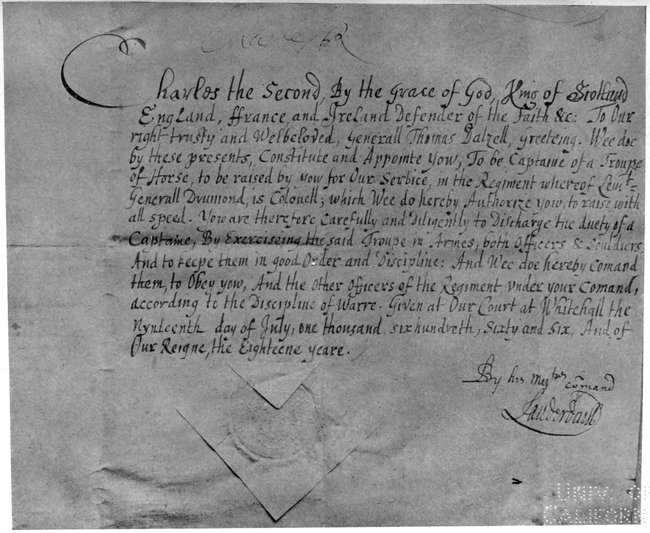 Charles R
Charles the Second, By the Grace of God, King of Scotland
England, ffrance, and Ireland Defender of the Faith &c: To Our
right trusty and Welbeloved, Generall Thomas Dalzell, Greeteing. Wee doe
by these presents, Constitute and Appointe yow, To be Captaine of a Troupe
of Horse, to be raised by yow for Our Service, in the Regiment whereof Leivt-
Generall Drumond, is Colonell; which Wee do hereby Authorize yow, to raise with
all speed. You are therefore Carefully and Diligently to Discharge the duety of a
Captaine, By Exerciseing the said Troupe in Armes, both Officers & Souldiers,
And to keepe them in good Order and Discipline: And Wee doe hereby Comand
them, to Obey yow, And the Other Officers of the Regiment vnder your Comand,
according to the Discipline of Warre. Given at Our Court at Whitehall the
Nynteenth day of July, one thousand sixhundreth, Sixty and Six, And of
Our Reigne, the Eighteene yeare.
By his Ma^ties comand
Lauderdaill
UNIV. OF
CALIFORN